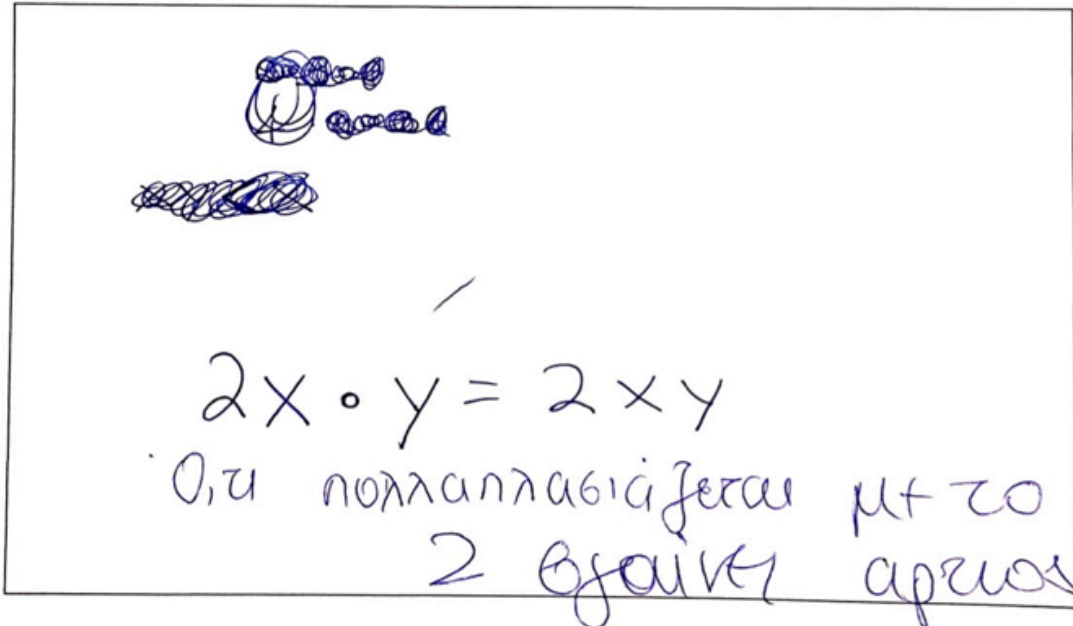 2x · y = 2xy
Ο,τι πολλαπλασιάζεται με το
2 βγαίνει αρτιος